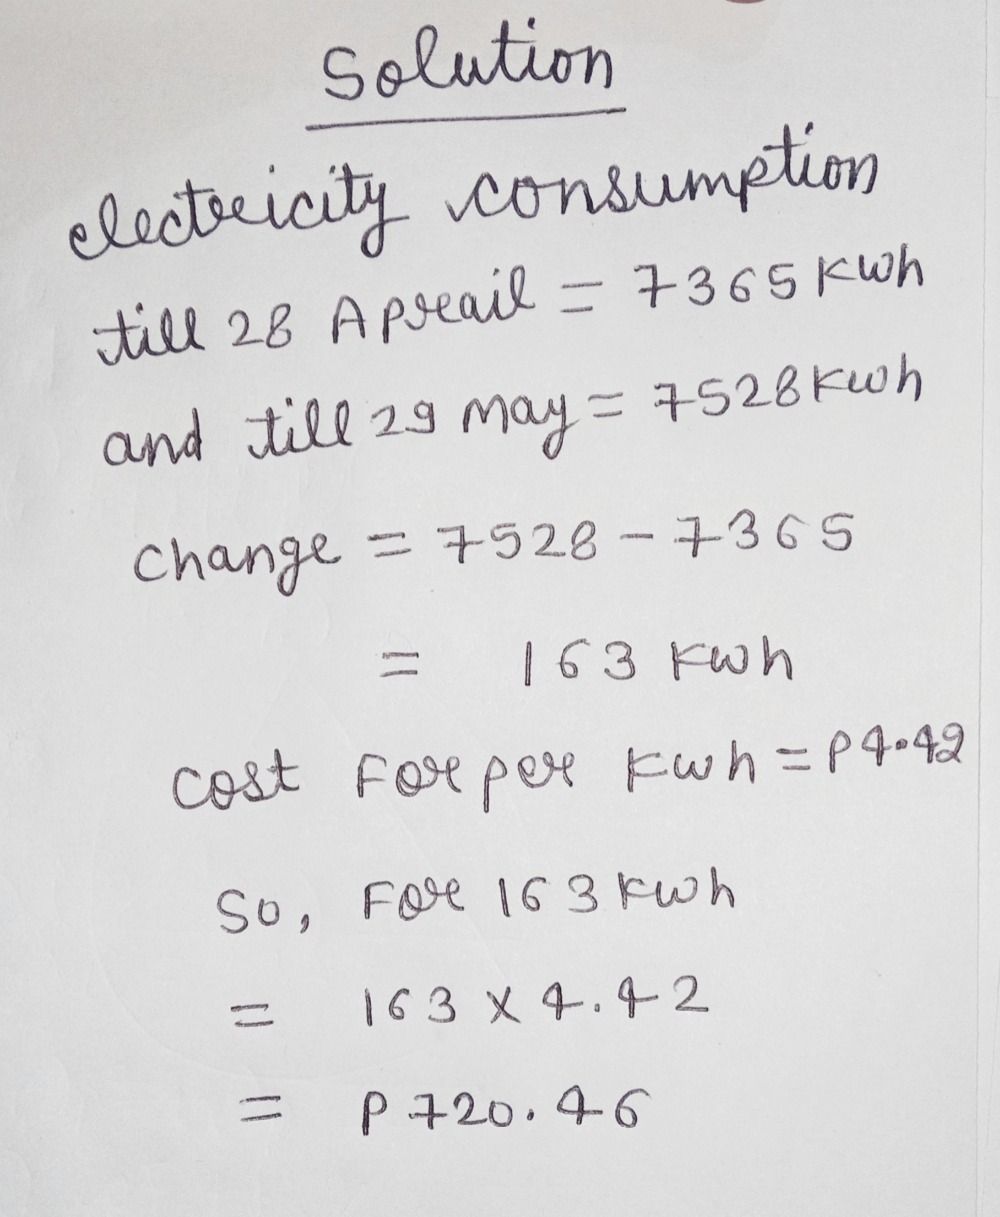 Solution
electricity consumption
till 28 Apreail = 7365 kwh
and till 29 may = 7528 kwh
change = 7528 - 7365
= 163 kwh
cost For per kwh = P4.42
So, For 163 kwh
= 163 x 4.42
= P 720.46